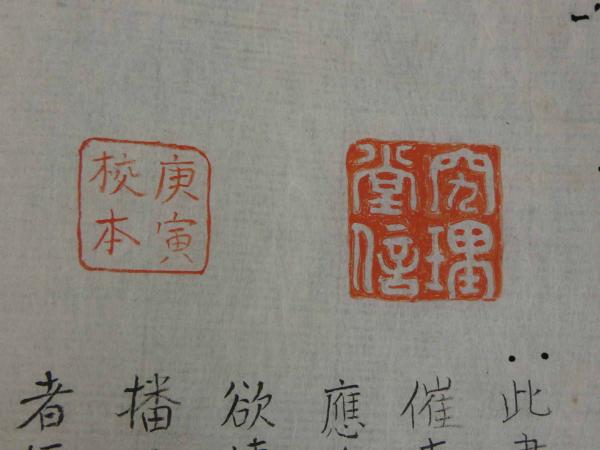 究理
堂信
庚寅
校本
此
催
應
欲
播
者